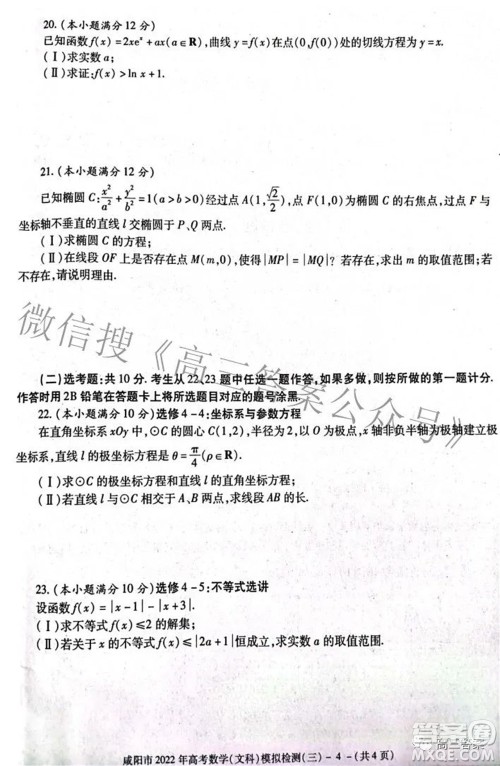 20.(本小题满分12分)
已知函数f(x)=2xeˣ+ax(a∈R),曲线y=f(x)在点(0,f(0))处的切线方程为y=x.
(Ⅰ)求实数a;
(Ⅱ)求证:f(x)>ln x+1.
21.(本小题满分12分)
已知椭圆C:x²/a²+y²/b²=1(a>b>0)经过点A(1,√2/2),点F(1,0)为椭圆C的右焦点,过点F与
坐标轴不垂直的直线l交椭圆于P、Q两点.
(Ⅰ)求椭圆C的方程;
(Ⅱ)在线段OF上是否存在点M(m,0),使得|MP|=|MQ|?若存在,求出m的取值范围;若
不存在,请说明理由.
微信搜《高三答案公众号》
(二)选考题:共10分.考生从22、23题中任选一题作答,如果多做,则按所做的第一题计分.
作答时用2B铅笔在答题卡上将所选题目对应的题号涂黑.
22.(本小题满分10分)选修4-4:坐标系与参数方程
在直角坐标系xOy中,⊙C的圆心C(1,2),半径为2,以O为极点,x轴非负半轴为极轴建立极
坐标系,直线l的极坐标方程是θ=π/4(ρ∈R).
(Ⅰ)求⊙C的极坐标方程和直线l的直角坐标方程;
(Ⅱ)若直线l与⊙C相交于A、B两点,求线段AB的长.
23.(本小题满分10分)选修4-5:不等式选讲
设函数f(x)=|x-1|-|x+3|.
(Ⅰ)求不等式f(x)≤2的解集;
(Ⅱ)若关于x的不等式f(x)≤|2a+1|恒成立,求实数a的取值范围.
咸阳市2022年高考数学(文科)模拟检测(三)-4-(共4页)
高三答案